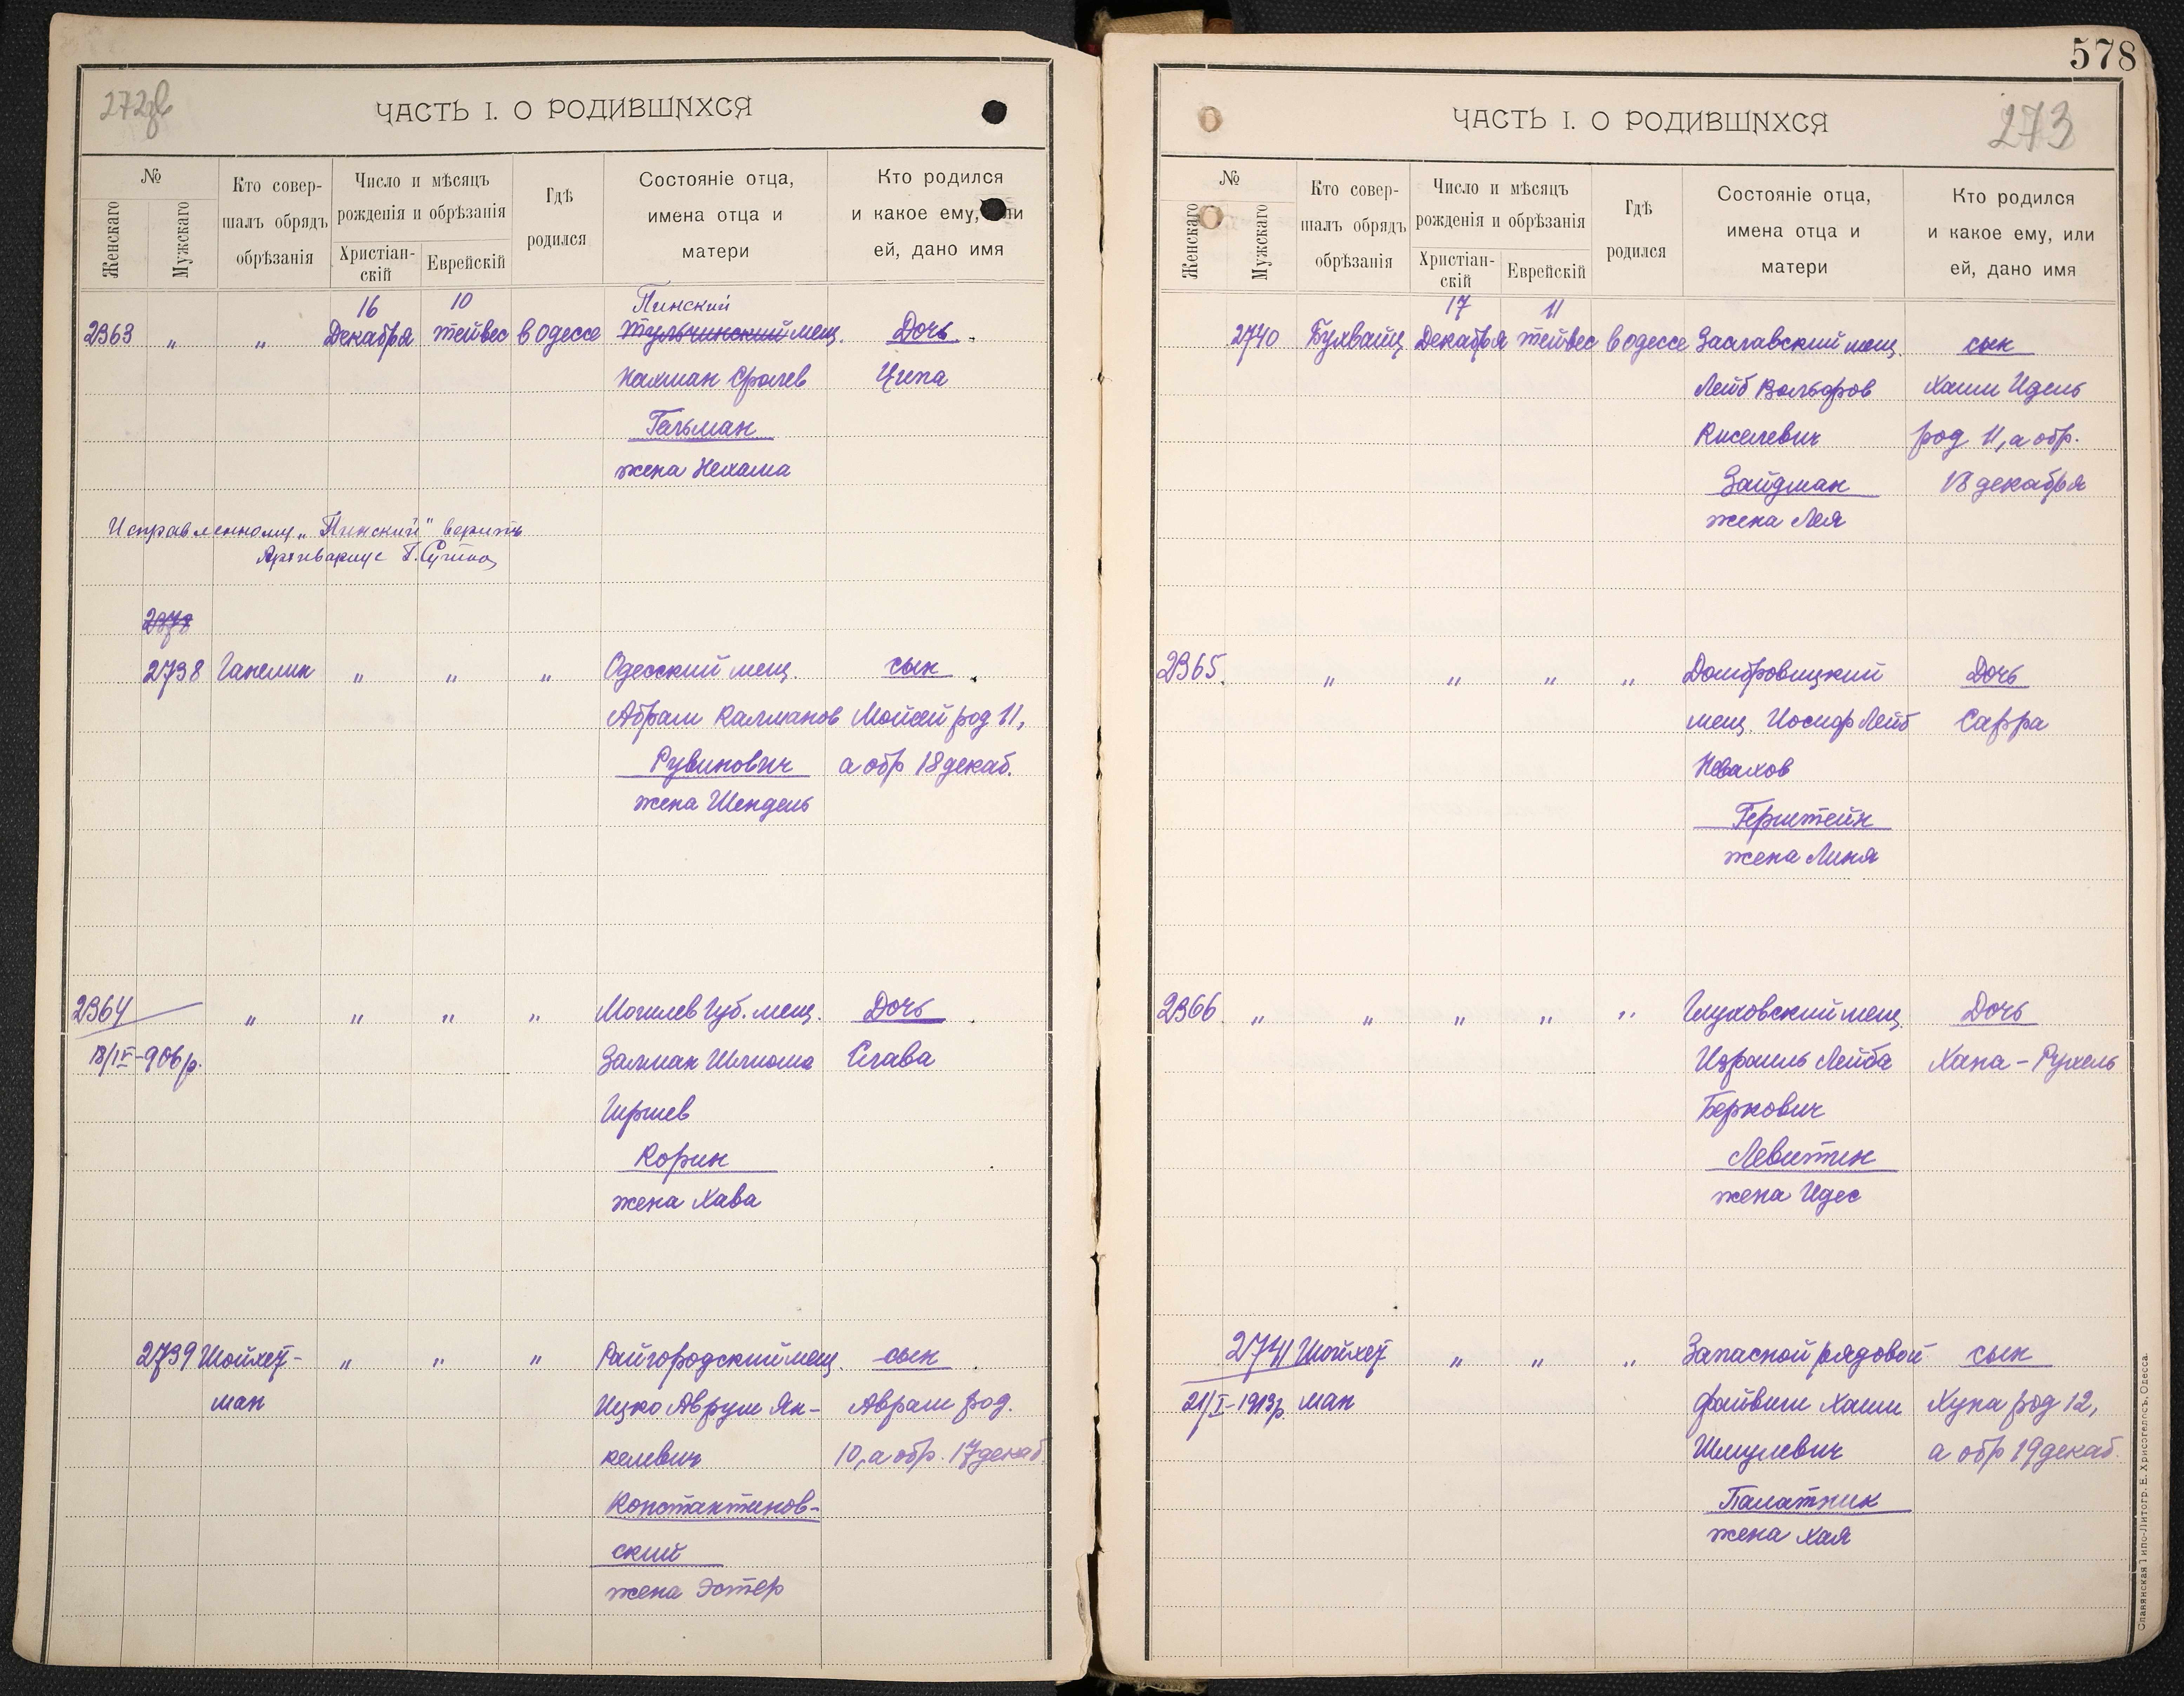 272об
ЧАСТЬ I. О РОДИВШИХСЯ
№
Женскаго
Мужскаго
Кто совер-
шалъ обрядъ
обрѣзанія
Число и мѣсяцъ
рожденія и обрѣзанія
Христіан-
скій
Еврейскій
Гдѣ
родился
Состояніе отца,
имена отца и
матери
Кто родился
и какое ему, или
ей, дано имя
16 10 Пинский
2363 " " Декабря тейвес в Одессе Тульчинский мещ. Дочь
Нахман Сролев Ципа
Гельман
жена Нехама
Исправленному „Пинский" верить
Архивариус
2738 Ганелин " " " Одесский мещ. сын
Абрам Калманов Мойсей род 11,
Рувинович а обр 18 декаб.
жена Шендель
2364 " " " " Могилев Губ. мещ. Дочь
18/IV-906 р. Залман Шлиома Слава
Гиршев
Корин
жена Хава
2739 Шойхет- " " " Райгородский мещ. сын
ман Ицко Аврум Ян- Авраам род.
келевич 10, а обр. 17 декаб.
Константинов-
ский
жена Эстер
578
ЧАСТЬ I. О РОДИВШИХСЯ
273
№
Женскаго
Мужскаго
Кто совер-
шалъ обрядъ
обрѣзанія
Число и мѣсяцъ
рожденія и обрѣзанія
Христіан-
скій
Еврейскій
Гдѣ
родился
Состояніе отца,
имена отца и
матери
Кто родился
и какое ему, или
ей, дано имя
17 11
2740 Бухвайц Декабря тейвес в Одессе Заславский мещ. сын
Лейб Вольфов Хаим Идель
Киселевич род 11, а обр.
Зайдман 18 декабря
жена Лея
2365 " " " " Домбровицкий Дочь
мещ. Иосиф Лейб Сарра
Невахов
Герштейн
жена Линя
2366 " " " " " Глуховский мещ. Дочь
Израиль Лейба Хана-Рухель
Беркович
Левитин
жена Идес
2741 Шойхет " " " Запасной рядовой сын
21/I-1913 р. ман Файвиш Хаим Хуна род 12,
Шмулевич а обр 19 декаб.
Палатник
жена Хая
Славянская Типо-Литогр. Е. Хрисогелосъ, Одесса.